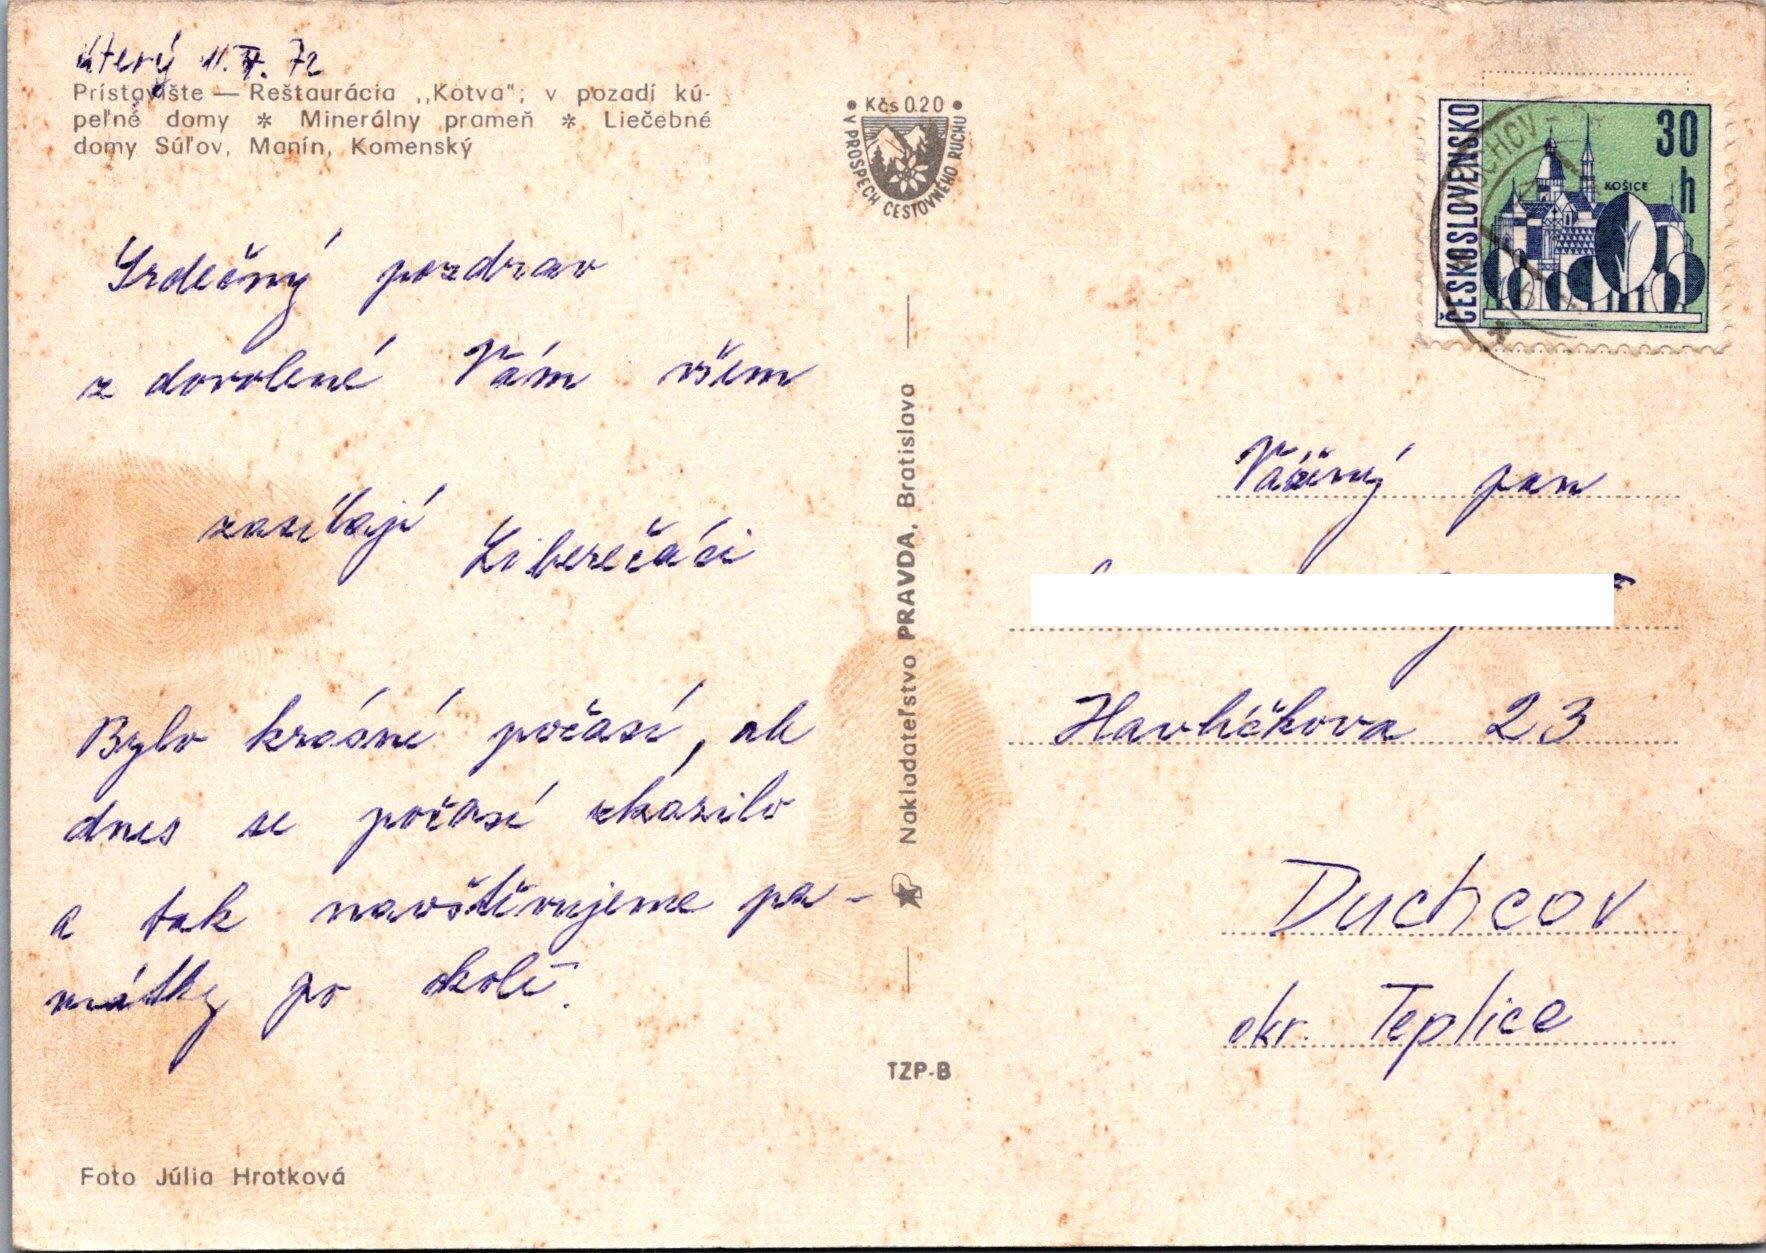 úterý 11. IV. 72
Prístavište — Reštaurácia ,,Kotva"; v pozadí kú-
peľné domy * Minerálny prameň * Liečebné
domy Súľov, Manín, Komenský
Srdečný pozdrav
z dovolené Vám všem
zasílají
Liberečáci
Bylo krásné počasí, ale
dnes se počasí zkazilo
a tak navštěvujeme pa-
mátky po okolí.
Foto Júlia Hrotková
• Kčs 0.20 •
V PROSPECH CESTOVNÉHO RUCHU
Nakladateľstvo PRAVDA, Bratislava
TZP-B
ČESKOSLOVENSKO
30
h
KOŠICE
Vážený pan
Havlíčkova 23
Duchcov
okr. Teplice